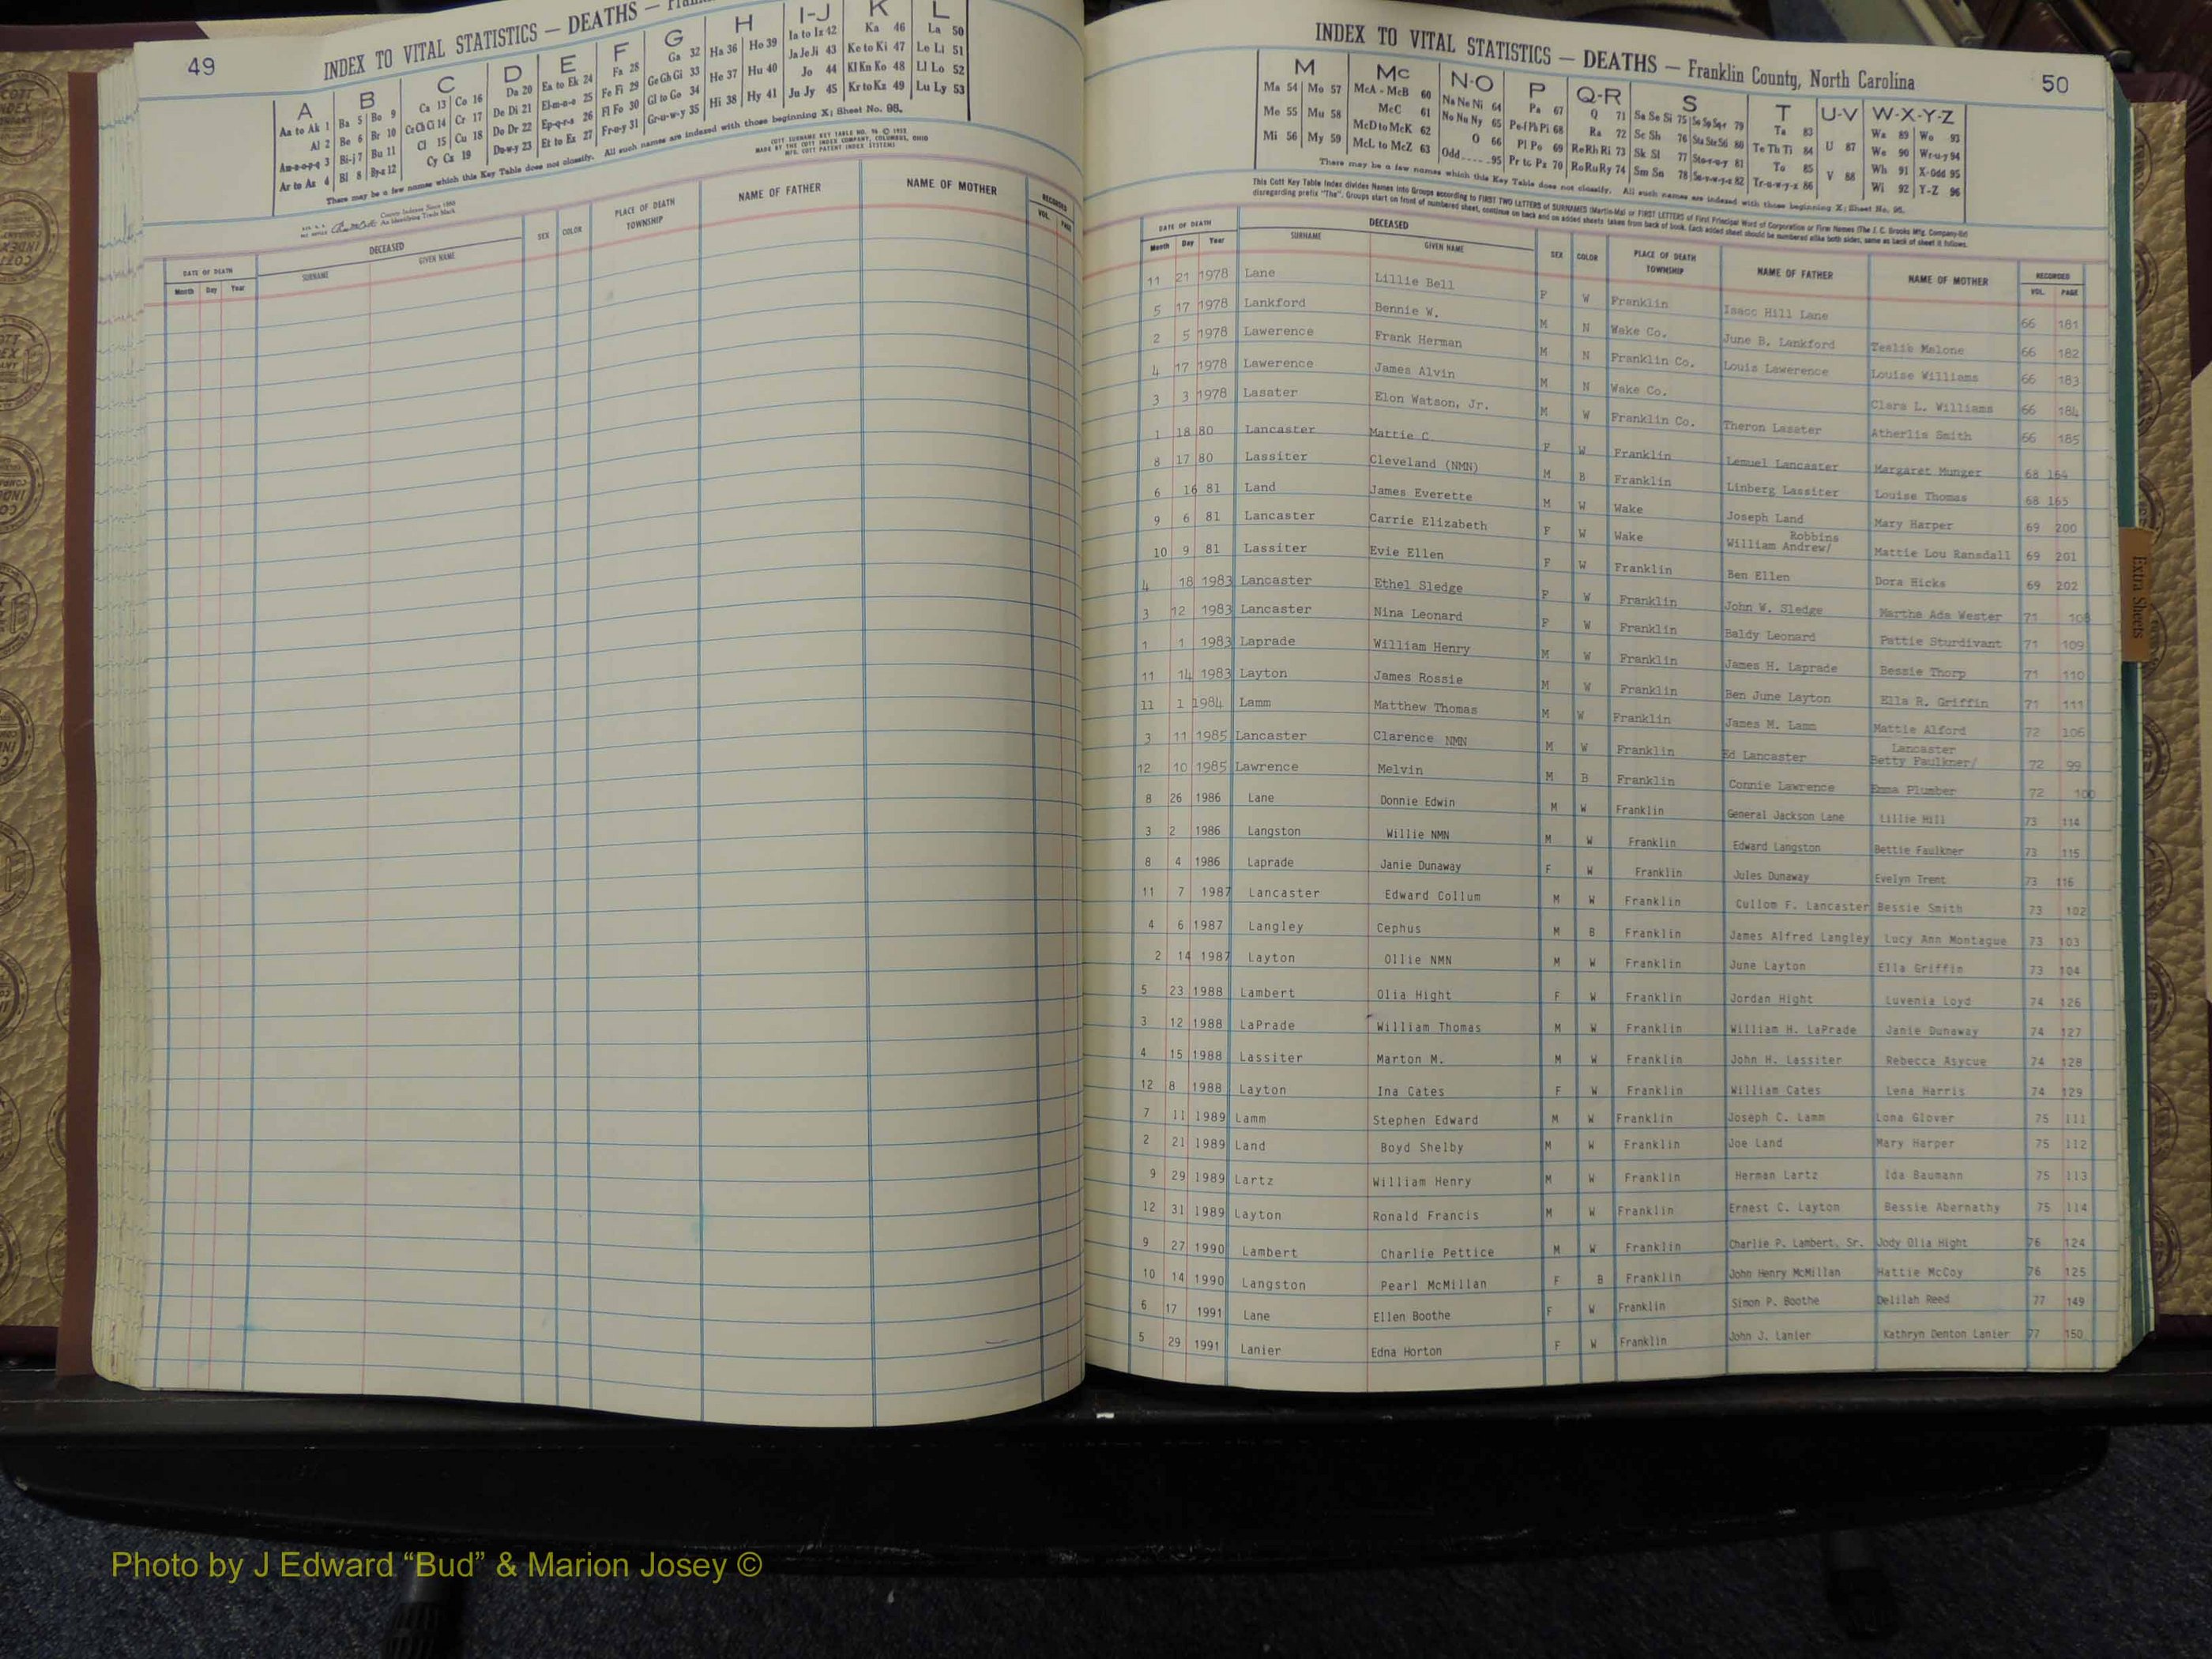 49
INDEX TO VITAL STATISTICS — DEATHS —
A B C D E F G H I-J K L
Aa to Ak 1 Ba 5 Bo 9 Ca 13 Co 16 Da 20 Ea to Ek 24 Fa 28 Ga 32 Ha 36 Ho 39 Ia to Iz 42 Ka 46 La 50
Al 2 Be 6 Br 10 Ce Ch Ci 14 Cr 17 De Di 21 El-m-n-o 25 Fe Fi 29 Ge Gh Gi 33 He 37 Hu 40 Ja Je Ji 43 Ke to Ki 47 Le Li 51
Am-n-o-p-s 3 Bi-j 7 Bu 11 Cl 15 Cu 18 Do Dr 22 Ep-q-r-s 26 Fl Fo 30 Gl to Go 34 Hi 38 Hy 41 Jo 44 Kl Kn Ko 48 Ll Lo 52
Ar to Az 4 Bl 8 By-z 12 Cy Cz 19 Du-w-y 23 Et to Ez 27 Fr-u-y 31 Gr-u-w-y 35 Ju Jy 45 Kr to Kz 49 Lu Ly 53
There may be a few names which this Key Table does not classify. All such names are indexed with those beginning X; Sheet No. 98.
DATE OF DEATH DECEASED SEX COLOR PLACE OF DEATH TOWNSHIP NAME OF FATHER NAME OF MOTHER RECORDED
Month Day Year SURNAME GIVEN NAME VOL. PAGE
INDEX TO VITAL STATISTICS — DEATHS — Franklin County, North Carolina
50
M Mc N-O P Q-R S T U-V W-X-Y-Z
Ma 54 Mo 57 McA - McB 60 Na Ne Ni 64 Pa 67 Q 71 Sa Se Si 75 79 Ta 83 U 87 Wa 89 Wo 93
Me 55 Mu 58 McC 61 No Nu Ny 65 Pe-f Ph Pi 68 Ra 72 Sc Sh 76 80 Te Th Ti 84 V 88 We 90 Wr-u-y 94
Mi 56 My 59 McD to McK 62 O 66 Pl Po 69 Re Rh Ri 73 Sk Sl 77 81 To 85 Wh 91 X-Odd 95
McL to McZ 63 Odd 95 Pr to Pz 70 Ro Ru Ry 74 Sm Sn 78 82 Tr-u-w-y-z 86 Wi 92 Y-Z 96
There may be a few names which this Key Table does not classify. All such names are indexed with those beginning X; Sheet No. 98.
DATE OF DEATH DECEASED SEX COLOR PLACE OF DEATH TOWNSHIP NAME OF FATHER NAME OF MOTHER RECORDED
Month Day Year SURNAME GIVEN NAME VOL. PAGE
11 21 1978 Lane Lillie Bell F W Franklin Isacc Hill Lane 66 181
5 17 1978 Lankford Bennie W. M N Wake Co. June B. Lankford Teslib Malone 66 182
2 5 1978 Lawerence Frank Herman M N Franklin Co. Louis Lawerence Louise Williams 66 183
4 17 1978 Lawerence James Alvin M N Wake Co. Clara L. Williams 66 184
3 3 1978 Lasater Elon Watson, Jr. M W Franklin Co. Theron Lasater Atherlia Smith 66 185
1 18 80 Lancaster Mattie C F W Franklin Lemuel Lancaster Margaret Munger 68 164
8 17 80 Lassiter Cleveland (NMN) M B Franklin Linberg Lassiter Louise Thomas 68 165
6 16 81 Land James Everette M W Wake Joseph Land Mary Harper 69 200
9 6 81 Lancaster Carrie Elizabeth F W Wake William Andrew/ Robbins Mattie Lou Ransdall 69 201
10 9 81 Lassiter Evie Ellen F W Franklin Ben Ellen Dora Hicks 69 202
4 18 1983 Lancaster Ethel Sledge F W Franklin John W. Sledge Martha Ada Wester 71 108
3 12 1983 Lancaster Nina Leonard F W Franklin Baldy Leonard Pattie Sturdivant 71 109
1 1 1983 Laprade William Henry M W Franklin James H. Laprade Bessie Thorp 71 110
11 14 1983 Layton James Rossie M W Franklin Ben June Layton Ella R. Griffin 71 111
11 1 1984 Lamm Matthew Thomas M W Franklin James M. Lamm Mattie Alford 72 106
3 11 1985 Lancaster Clarence NMN M W Franklin Ed Lancaster Betty Faulkner/ Lancaster 72 99
12 10 1985 Lawrence Melvin M B Franklin Connie Lawrence Emma Plumber 72 100
8 26 1986 Lane Donnie Edwin M W Franklin General Jackson Lane Lillie Hill 73 114
3 2 1986 Langston Willie NMN M W Franklin Edward Langston Bettie Faulkner 73 115
8 4 1986 Laprade Janie Dunaway F W Franklin Jules Dunaway Evelyn Trent 73 116
11 7 1987 Lancaster Edward Collum M W Franklin Cullom F. Lancaster Bessie Smith 73 102
4 6 1987 Langley Cephus M B Franklin James Alfred Langley Lucy Ann Montague 73 103
2 14 1987 Layton Ollie NMN M W Franklin June Layton Ella Griffin 73 104
5 23 1988 Lambert Olia Hight F W Franklin Jordan Hight Luvenia Loyd 74 126
3 12 1988 LaPrade William Thomas M W Franklin William H. LaPrade Janie Dunaway 74 127
4 15 1988 Lassiter Marton M. M W Franklin John H. Lassiter Rebecca Asycue 74 128
12 8 1988 Layton Ina Cates F W Franklin William Cates Lena Harris 74 129
7 11 1989 Lamm Stephen Edward M W Franklin Joseph C. Lamm Lona Glover 75 111
2 21 1989 Land Boyd Shelby M W Franklin Joe Land Mary Harper 75 112
9 29 1989 Lartz William Henry M W Franklin Herman Lartz Ida Baumann 75 113
12 31 1989 Layton Ronald Francis M W Franklin Ernest C. Layton Bessie Abernathy 75 114
9 27 1990 Lambert Charlie Pettice M W Franklin Charlie P. Lambert, Sr. Jody Olia Hight 76 124
10 14 1990 Langston Pearl McMillan F B Franklin John Henry McMillan Hattie McCoy 76 125
6 17 1991 Lane Ellen Boothe F W Franklin Simon P. Boothe Delilah Reed 77 149
5 29 1991 Lanier Edna Horton F W Franklin John J. Lanier Kathryn Denton Lanier 77 150
Extra Sheets
Photo by J Edward “Bud” & Marion Josey ©